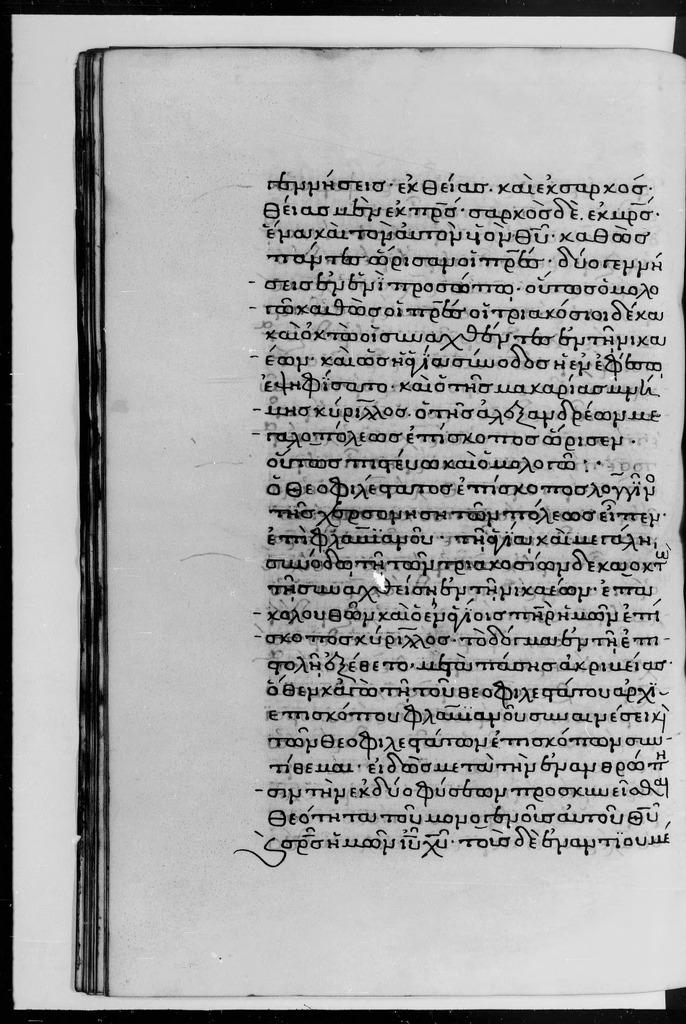 γεννήσεις· ἐκ θείας. καὶ ἐκ σαρκός·
θείας μὲν ἐκ πρς· σαρκὸς δὲ. ἐκ μρς·
ἕνα καὶ τὸν αὐτὸν υἱὸν θυ· καθὼς
πάντες ὥρισαν οἱ πρες· δύο γεννή
σεις ἐν ἑνὶ προσώπω· οὕτως ὁμολο
γῶ καθὼς οἱ πρες οἱ τριακόσιοι δέκα
καὶ ὀκτὼ οἱ συναχθέντες ἐν τῆ νικα
έων· καὶ ὡς ἡ ἁγία σύνοδος ἡ ἐν ἐφέσω
ἐψηφίσατο· καὶ ὁ τῆς μακαρίας μνή
μης κύριλλος. ὁ τῆς ἀλεξανδρέων με
γαλοπόλεως ἐπίσκοπος ὥρισεν.
οὕτως πιστεύω καὶ ὁμολογῶ :·
ὁ θεοφιλέστατος ἐπίσκοπος λογγῖνος
τῆς χερσονησητῶν πόλεως εἶπεν·
ἐπὶ φλαυϊανοῦ· τῆ ἁγία καὶ μεγάλη
συνόδω τῆ τῶν τριακοσίων δέκα ὀκτὼ
τῆ συναχθείση ἐν τῆ νικαέων· ἐπα
κολουθῶν καὶ ὁ ἐν ἁγίοις πηρ ἡμῶν ἐπί
σκοπος κύριλλος· τὸ δόγμα ἐν τῆ ἐπι
στολῆ ἐξέθετο. μετὰ πάσης ἀκριβείας·
ὅθεν κἀγὼ τῆ τοῦ θεοφιλεστάτου ἀρχι
επισκόπου φλαυϊανοῦ συναινέσει καὶ
τῶν θεοφιλεστάτων ἐπισκόπων συν
τίθεμαι· εἰδὼς μετὰ τὴν ἐνανθρώπη
σιν τὴν ἐκ δύο φύσεων προσκυνεῖσθαι
θεότητα τοῦ μονογενοῦς αὐτοῦ θυ
καὶ σρς ἡμῶν ιυ χυ· τοὺς δὲ ἐναντιουμέ